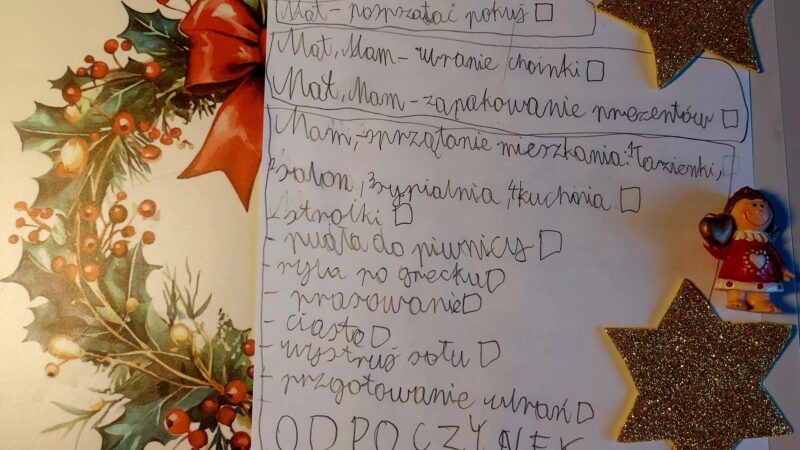 Mat - posprzątać pokuj
Mat, Mam - ubranie choinki
Mat, Mam - zapakowanie prezentów
Mam, - sprzątanie mieszkania: 1 łazienki,
2 salon, 3 sypialnia, 4 kuchnia
- stroiki
- pudła do piwnicy
- ryba po grecku
- prasowanie
- ciasto
- wystruj stołu
- przgotowanie ubrań
ODPOCZYNEK